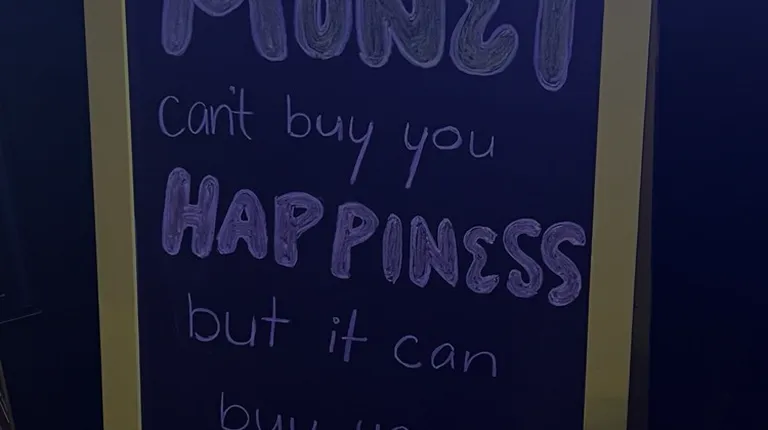 MONEY
can't buy you
HAPPINESS
but it can
buy